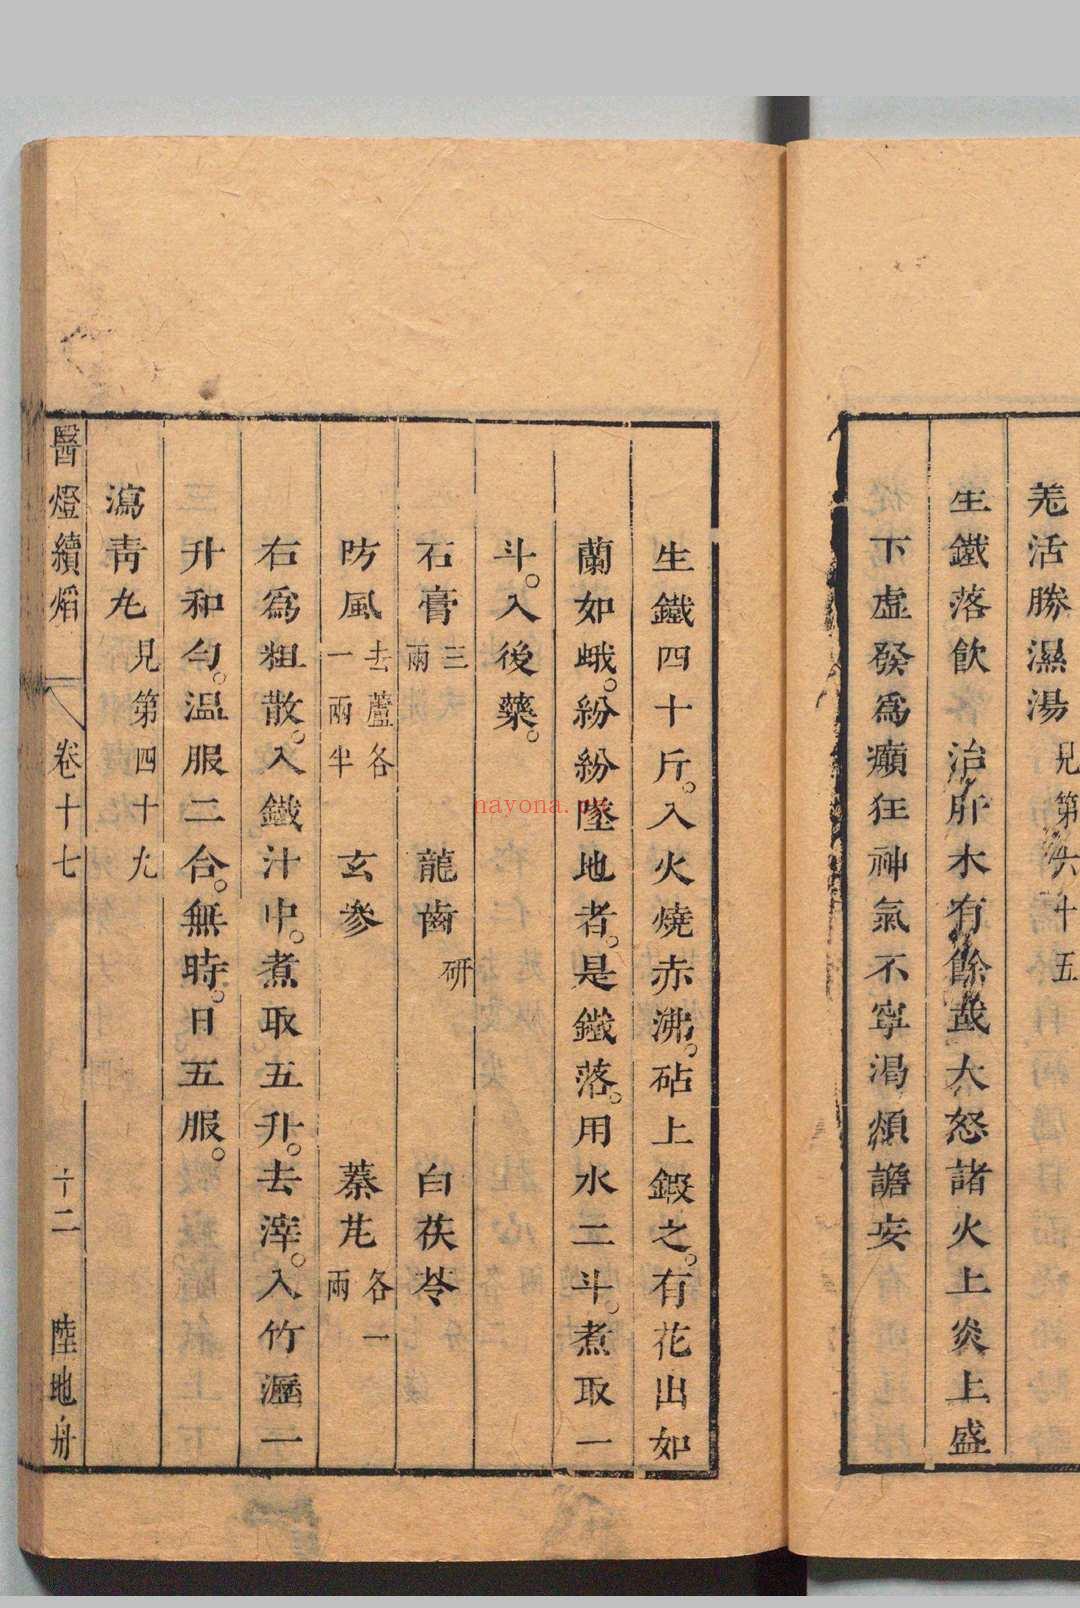 羌活勝濕湯見第六十五
生鐵落飲　治肝木有餘或大怒諸火上炎上盛
下虛發爲癲狂神氣不寧渴煩譫妄
生鐵四十斤。入火燒赤沸。砧上鍛之。有花出如
蘭如蛾。紛紛墜地者。是鐵落。用水二斗。煮取一
斗。入後藥。
石膏三兩　龍齒研　白茯苓
防風去蘆各一兩半　玄參　蓁芃各一兩
右爲粗散。入鐵汁中。煮取五升。去滓。入竹瀝一
升和勻。溫服二合。無時。日五服。
瀉靑丸見第四十九
醫燈續焰　卷十七　十二　陸地舟
nayona.